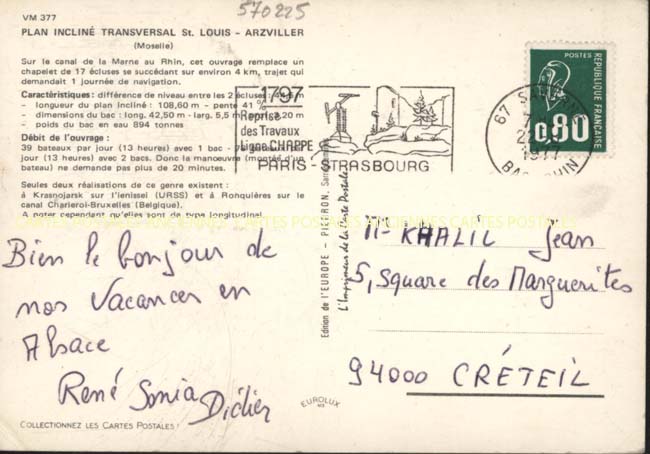 570225
VM 377
PLAN INCLINÉ TRANSVERSAL St. LOUIS - ARZVILLER
(Moselle)
Sur le canal de la Marne au Rhin, cet ouvrage remplace un
chapelet de 17 écluses se succédant sur environ 4 km, trajet qui
demandait 1 journée de navigation.
Caractéristiques : différence de niveau entre les 2 écluses :
- longueur du plan incliné : 108,60 m - pente 41 %
- dimensions du bac : long. 42,50 m - larg. 5,5 m
- poids du bac en eau 894 tonnes
Débit de l'ouvrage :
39 bateaux par jour (13 heures) avec 1 bac -
jour (13 heures) avec 2 bacs. Donc la manoeuvre (montée d'un
bateau) ne demande pas plus de 20 minutes.
Seules deux réalisations de ce genre existent :
à Krasnojarsk sur l'Ienissei (URSS) et à Ronquières sur le
canal Charleroi-Bruxelles (Belgique).
A noter cependant qu'elles sont de type longitudinal.
1797
Reprise
des Travaux
Ligne CHAPPE
PARIS - STRASBOURG
67
1977
POSTES
0,80
REPUBLIQUE FRANÇAISE
CARTES POSTALES ANCIENNES CARTES POSTALES
Bien le bonjour de
nos Vacances en
Alsace
René Sonia Didier
Edition de l'EUROPE - PIERRON,
L'Imprimeur de la Carte Postale
KHALIL Jean
5, Square des Marguerites
94000 CRÉTEIL
EUROLUX
COLLECTIONNEZ LES CARTES POSTALES !